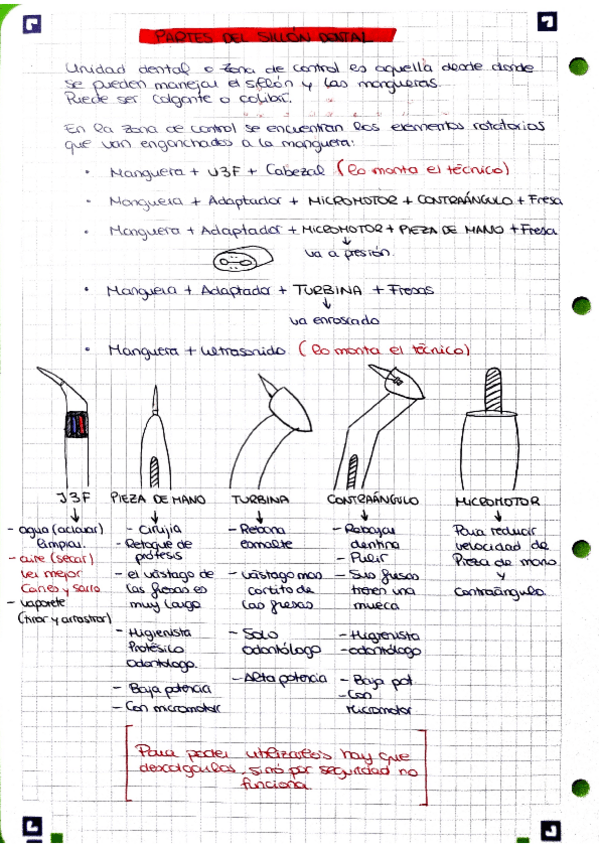 PARTES DEL SILLÓN DENTAL
Unidad dental o zona de control es aquella desde donde
se pueden manejar el sillón y las mangueras.
Puede ser colgante o colibrí.
En la zona de control se encuentran los elementos rotatorios
que van enganchados a la manguera:
• Manguera + J3F + Cabezal (lo monta el técnico)
• Manguera + Adaptador + MICROMOTOR + CONTRAÁNGULO + Fresa
• Manguera + Adaptador + MICROMOTOR + PIEZA DE MANO + Fresa
↓
va a presión.
• Manguera + Adaptador + TURBINA + Fresas
↓
va enroscado
• Manguera + ultrasonido (lo monta el técnico)
J3F
↓
- agua (aclarar)
limpiar.
- aire (secar)
ver mejor
Caries y sarro
- vaporete
(tirar y arrastrar)
PIEZA DE MANO
↓
- Cirujía
- Retoque de
prótesis
- el vástago de
las fresas es
muy largo
- Higienista
Protésico
Odontólogo.
- Baja potencia
- Con micromotor
TURBINA
↓
- Rebana
esmalte
- vástago mas
cortito de
las fresas
- Solo
odontólogo
- Alta potencia
CONTRAÁNGULO
↓
- Rebajar
dentina
- Pulir
- Sus fresas
tienen una
mueca
- Higienista
- odontólogo
- Baja pot
- Con
Micromotor
MICROMOTOR
↓
Para reducir
velocidad de
Pieza de mano
y
contraángulo
Para poder utilizarlos hay que
descolgarlos, sinó por seguridad no
funciona